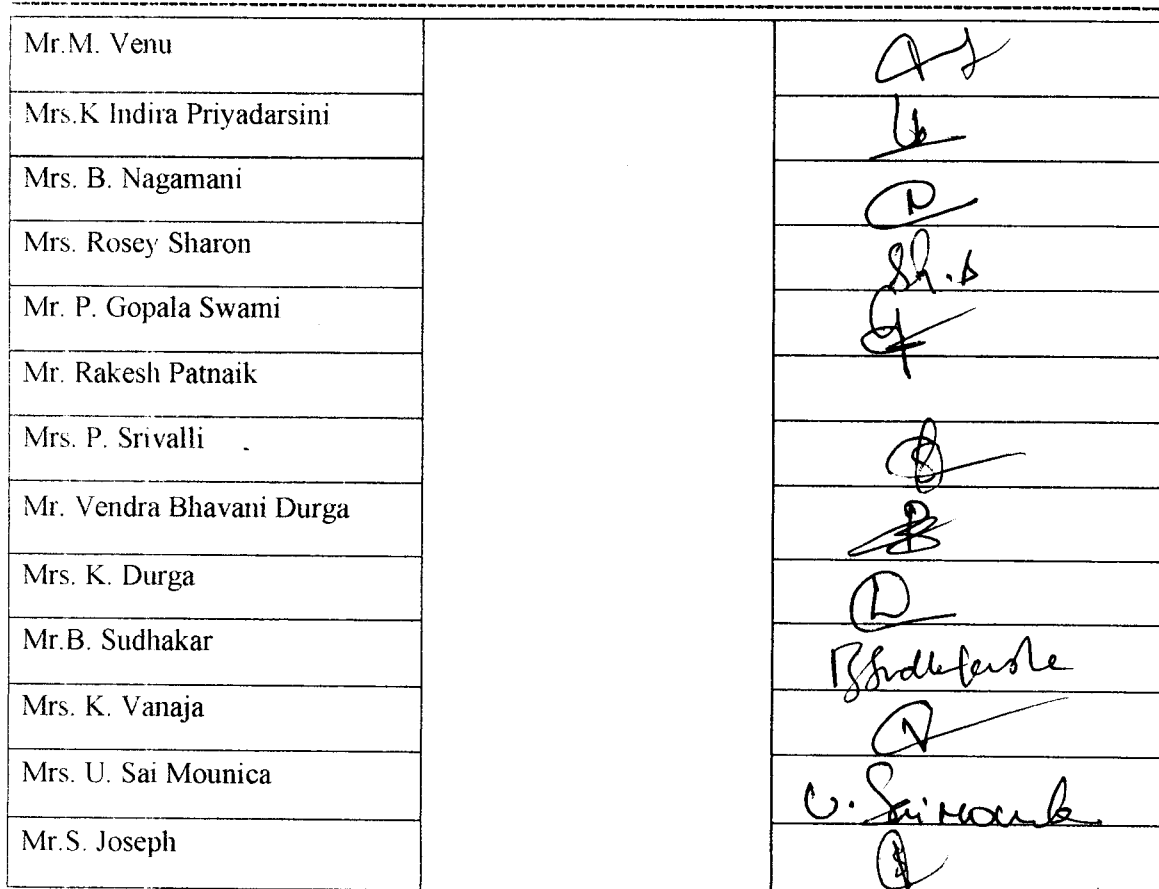 Mr.M. Venu
Mrs.K Indira Priyadarsini
Mrs. B. Nagamani
Mrs. Rosey Sharon
Sh.s
Mr. P. Gopala Swami
Mr. Rakesh Patnaik
Mrs. P. Srivalli
Mr. Vendra Bhavani Durga
Mrs. K. Durga
Mr.B. Sudhakar
Mrs. K. Vanaja
Mrs. U. Sai Mounica
U. Sai Mounika
Mr.S. Joseph